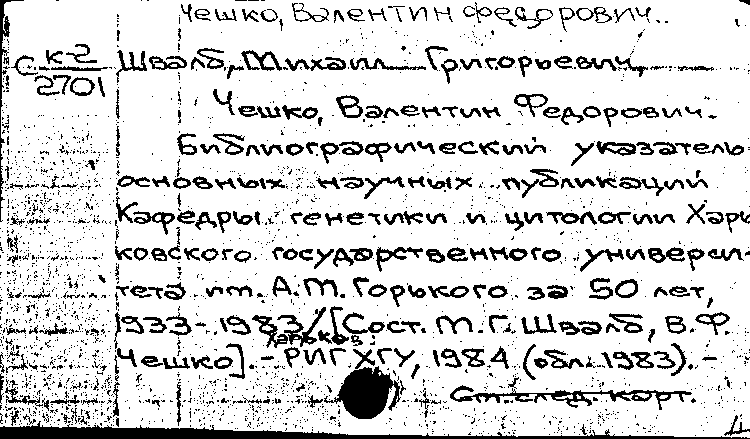 Чешко, Валентин Федорович.
С к-2
2701
Швалб, Михаил Григорьевич,
Чешко, Валентин Федорович.
Библиографический указатель
основных научных публикаций
Кафедры генетики и цитологии Харь
ковского государственного универси-
тета им. А.М. Горького за 50 лет,
1933-1983/[Сост. М.Г. Швалб, В.Ф.
Харьков:
Чешко].- РИГ ХГУ, 1984 (обл. 1983). -
См. след. карт.